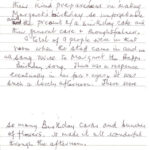 their kind preparation in making
Margaret's birthday so unforgettable
their present care & thoughtfulness.
A total of 9 people were in that
room when the staff came in and
sang twice to Margaret the Happy
Birthday song. There was a response
eventually in her face & eyes, it was
such a lovely afternoon. There were
so many Birthday Cards and bunches
of flowers. It made it all wonderful
through the afternoon.